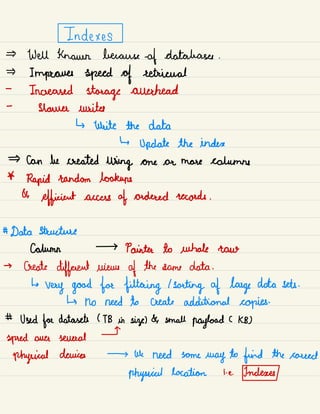 Indexes
⇒ Well Known because of databases.
⇒ Improves speed of retrieval
- Increased storage overhead
- Slower writes
↳ Write the data
↳ Update the index
⇒ Can be created Using one or more columns
* Rapid random lookups
& efficient access of ordered records.
# Data Structure
Column → Pointer to whole row
→ Create different views of the same data.
↳ very good for filtering / sorting of large data sets.
↳ no need to create additional copies.
# Used for datasets (TB in size) & small payload ( KB)
spred over several
physical devices → We need some way to find the correct
physical location i.e Indexes